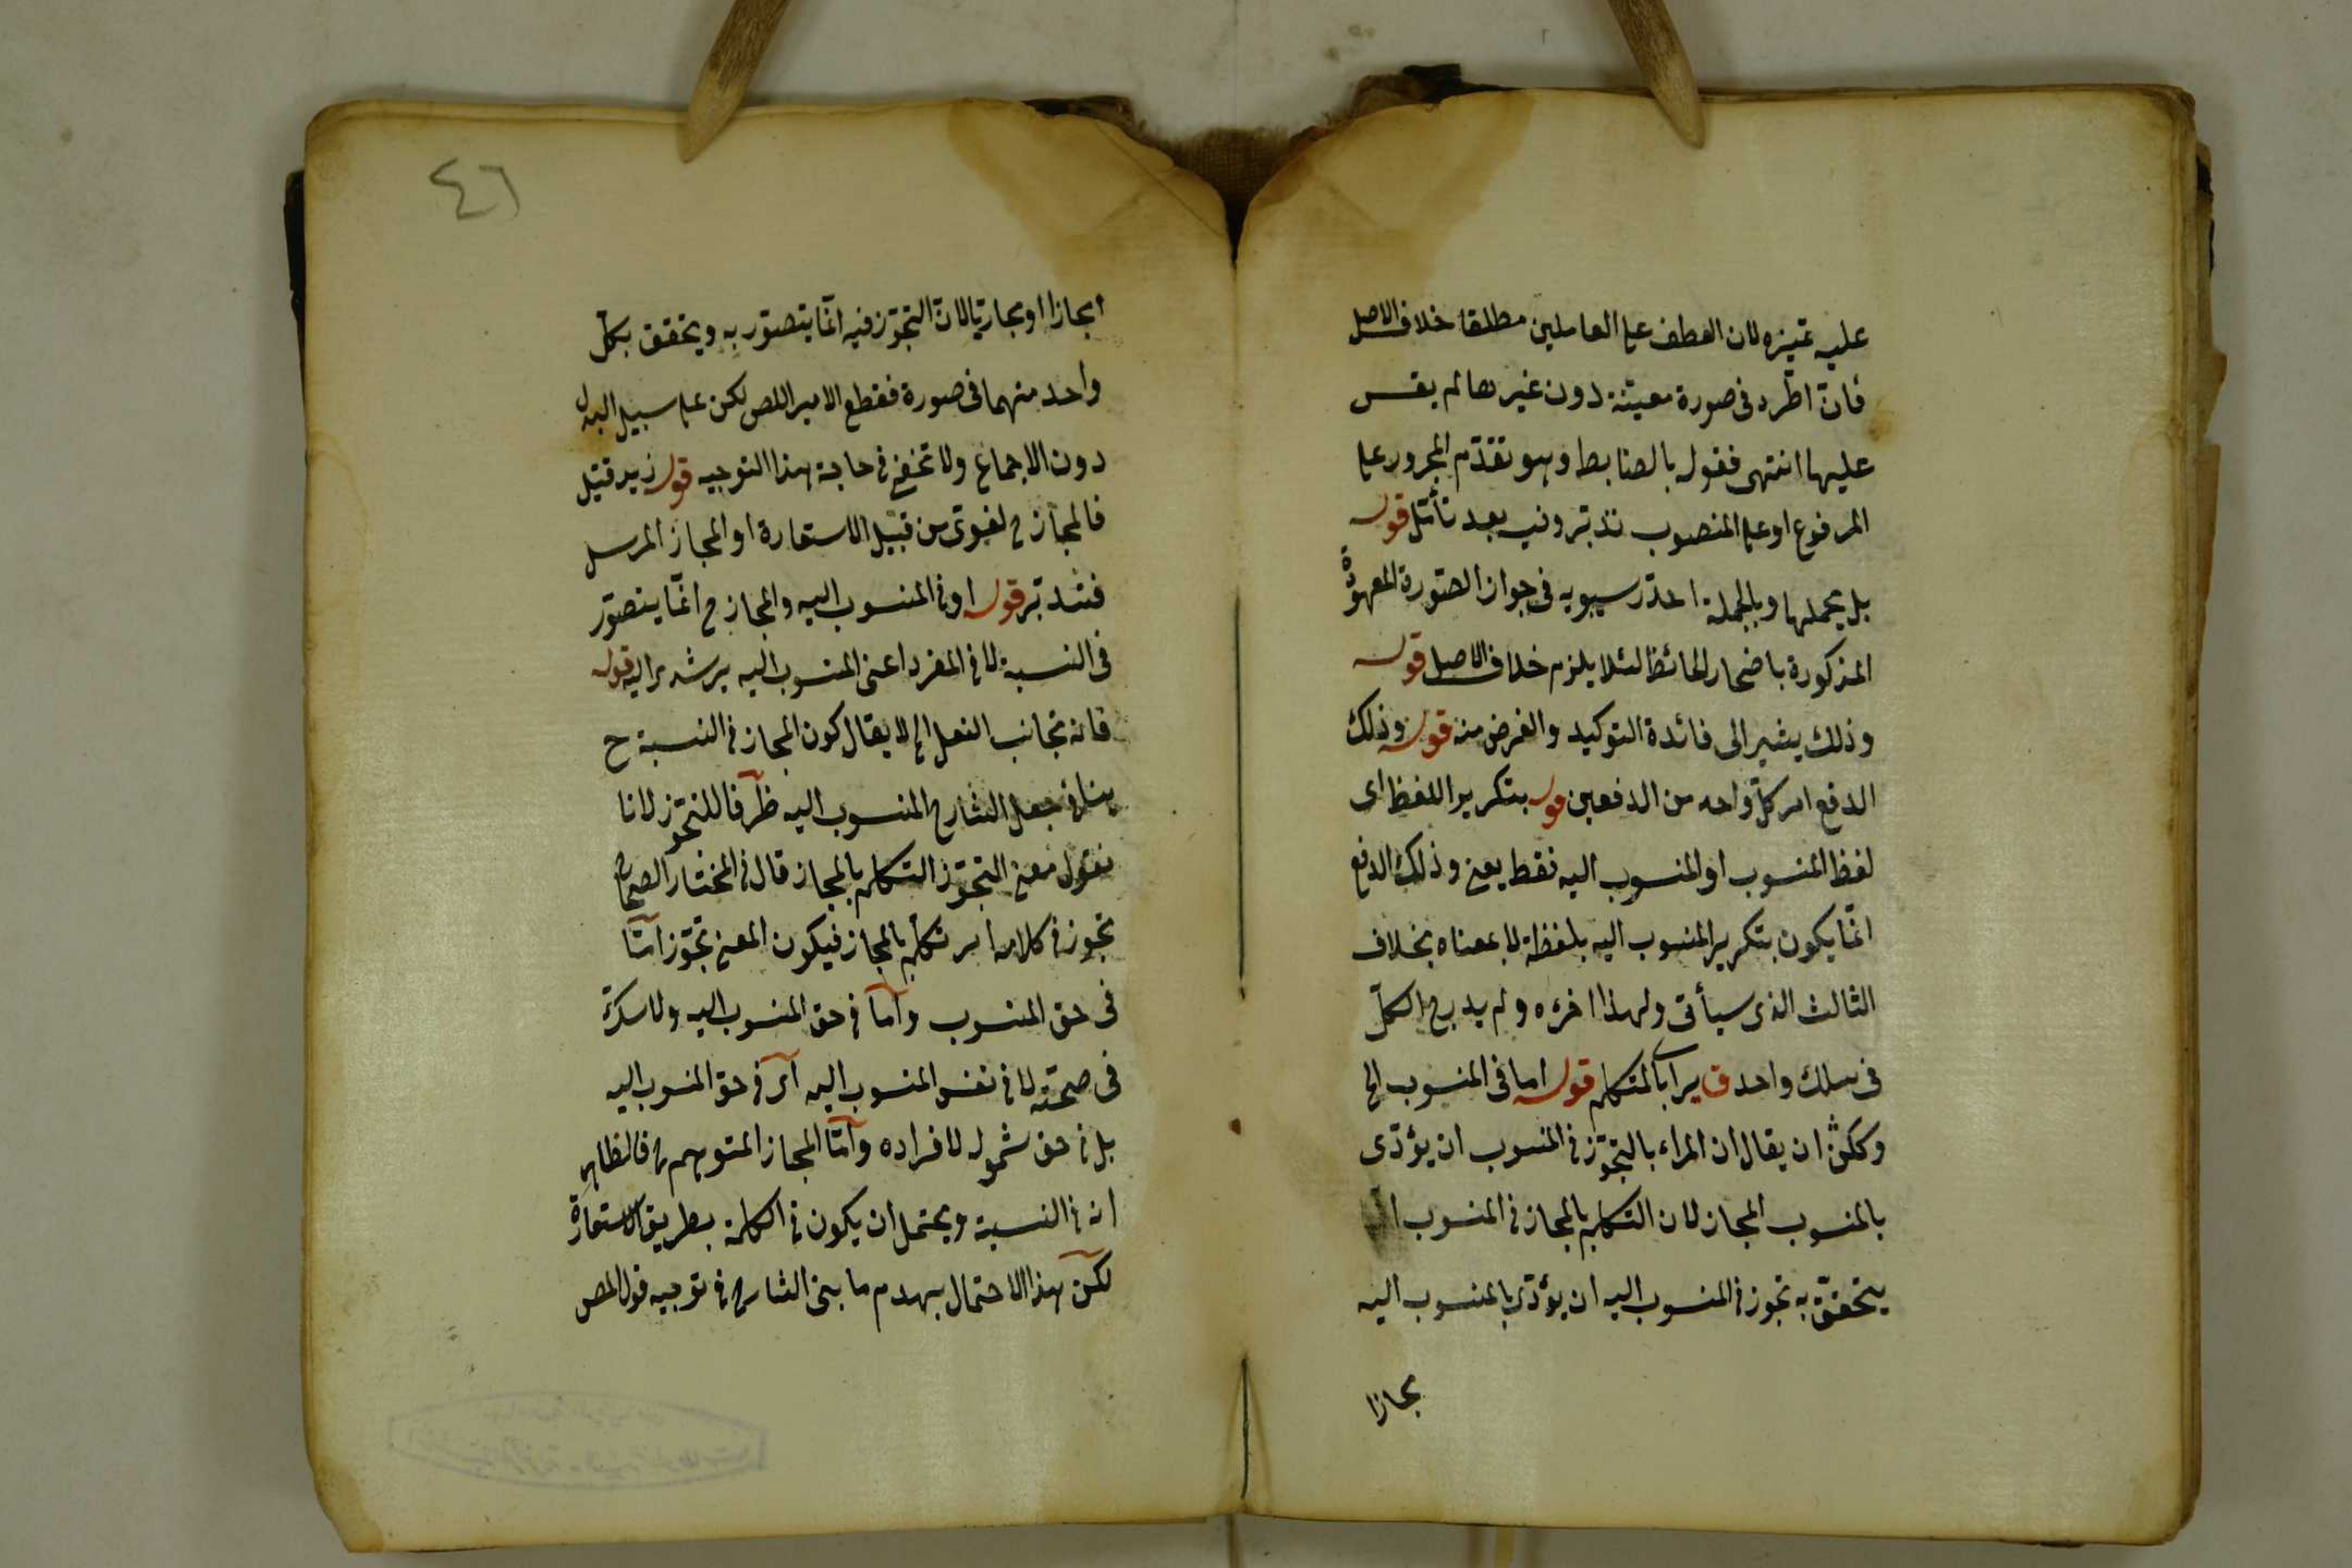 عليه غيره لان العطف على العاملين مطلقا خلاف الاصل
فان اطرد فى صورة معينة دون غيرها لم يقس
عليها انتهى فقول بالضابط وهو تقدم المجرور على
المرفوع او على المنصوب تدبر وفيه بعد تأمل قوله
بل يحملها وبالجملة اعذر سيبويه فى جواز الصورة المعهودة
المذكورة باضمار الحائظ لئلا يلزم خلاف الاصل قوله
وذلك يشير الى فائدة التوكيد والغرض منه قوله وذلك
الدفع اى كل واحد من الدفعين قوله بتكرير اللفظ اى
لفظ المنسوب او المنسوب اليه فقط يعنى وذلك الدفع
انما يكون بتكرير المنسوب اليه بلفظه لا بمعناه بخلاف
الثالث الذى سيأتى ولهذا اخره ولم يدرج الكل
فى سلك واحد المتكلم قوله اما فى المنسوب الخ
ويمكن ان يقال ان المراد بالتجوز فى المنسوب ان يؤدى
بالمنسوب المجاز لان التكلم بالمجاز فى المنسوب
يتحقق به تجوز فى المنسوب اليه ان يؤدى بالمنسوب اليه
مجازا
٤٦
مجازا او مجازيا لان التجوز فيه انما يتصور به ويتحقق بكل
واحد منهما فى صورة فقطع الامير اللص لكن على سبيل البدل
دون الاجماع ولا تخفى فى حاجة هذا التوجيه قوله زيد قتيل
فالمجاز ح لغوى من قبيل الاستعارة او المجاز المرسل
فتدبر قوله او فى المنسوب اليه والمجاز ح انما يتصور
فى النسبة لا فى المفرد اعنى المنسوب اليه يرشد اليه قوله
فانه تجانب الفعل الخ لا يقال كون المجاز فى النسبة ح
ينافى جعل الشارح المنسوب اليه ظرفا للتجوز لانا
نقول معنى التجوز التكلم بالمجاز قال فى المختار الصحاح
تجوز فى كلامه اى تكلم بالمجاز فيكون المعنى تجوز اما
فى حق المنسوب واما فى حق المنسوب اليه ولا سترة
فى صحته لا فى نفس المنسوب اليه اى فى حق المنسوب اليه
بل فى حق شموله لافراده واما المجاز المتوهم ح فالظاهر
انه فى النسبة ويحتمل ان يكون فى الكلمة بطريق الاستعارة
لكن هذا الاحتمال يهدم ما بنى الشارح فى توجيه قول المص